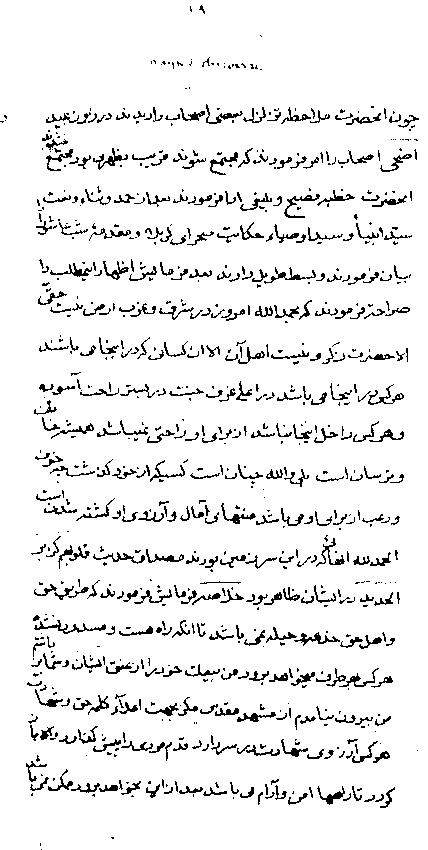 ۱۹
چون انحضرت ملاحظه تزلزل بعضی اصحاب را دیدند در روز عید
اضحی اصحاب را امر فرمودند که مجتمع شوند قریب بظهر بود مجتمع شدند
انحضرت خطبه فصیح و بلیغی ادا فرمودند بعد از حمد و ثناء و نعت
سید انبیا و سید اوصیاء حکایت صحرای کربلا و مقدمه شب عاشورا
بیان فرمودند و بسط طویل دادند بعد فرمایش اظهار این مطلب را
صراحة فرمودند که بحمد الله امروز در مشرق و مغرب ارض نیست حقی
الا حضرت ذکر و نیست اهل آن الا ان کسان که در اینجا می باشند
هر کس در اینجا می باشد در اعلی غرف جنت در بستر راحت آسوده
و هر کس داخل اینجا نباشد از برای او راحتی نمیباشد همیشه خائف
و ترسان است بلی والله چنان است کسیکه از خود گذشت چه خوف
و رعب از برای او می باشد منتهای آمال و آرزوی او کشته شدن است
الحمد لله انفاسی که در این سرزمین بودند مصداق حدیث قلوبهم کزبر
الحدید در ایشان ظاهر بود خلاصه فرمایش فرمودند که طریق حق
و اهل حق خدعه و حیله نمی باشد تا انکه راه هست و مسدود نشده
هر کس هر طرف میخواهد برود من بیعت خود را از عنق ایشان و شما برداشتم
من بیرون نیامدم از مشهد مقدس مگر بجهت اعلاء کلمه حق و شهادت
هر کس آرزوی شهادت در سر دارد قدم مردی را پیش گذارد و
کرد تا راهها امن و آرام می باشد بعد از این بخواهد برود ممکن نمی باشد